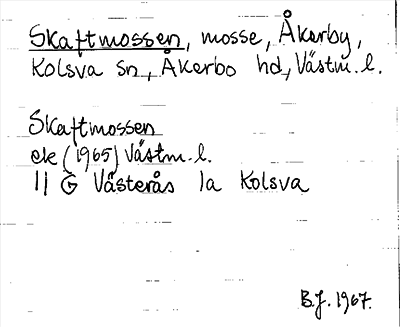 Skaftmossen, mosse, Åkerby,
Kolsva sn, Åkerbo hd, Västm. l.
Skaftmossen
ek (1965) Västm. l.
11 G Västerås 1a Kolsva
B.J. 1967.